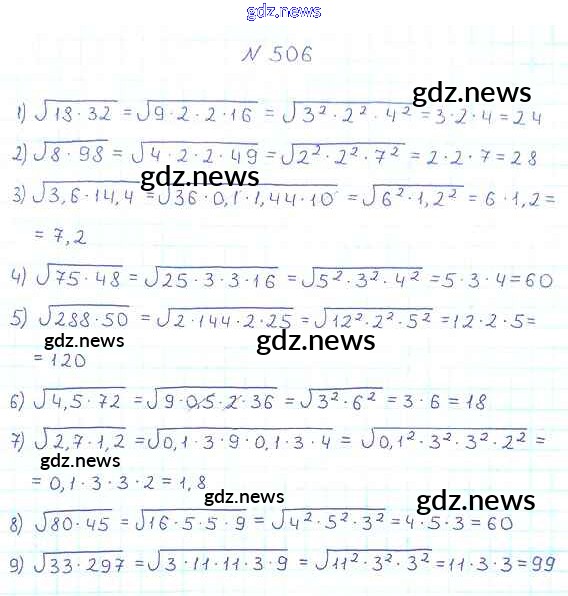 gdz.news
N 506
gdz.news
1) √18·32 = √9·2·2·16 = √3²·2²·4² = 3·2·4 = 24
2) √8·98 = √4·2·2·49 = √2²·2²·7² = 2·2·7 = 28
gdz.news
3) √3,6·14,4 = √36·0,1·1,44·10 = √6²·1,2² = 6·1,2 =
= 7,2
4) √75·48 = √25·3·3·16 = √5²·3²·4² = 5·3·4 = 60
5) √288·50 = √2·144·2·25 = √12²·2²·5² = 12·2·5 =
gdz.news gdz.news
= 120
6) √4,5·72 = √9·0,5·2·36 = √3²·6² = 3·6 = 18
7) √2,7·1,2 = √0,1·3·9·0,1·3·4 = √0,1²·3²·3²·2² =
gdz.news
= 0,1·3·3·2 = 1,8
gdz.news gdz.news
8) √80·45 = √16·5·5·9 = √4²·5²·3² = 4·5·3 = 60
9) √33·297 = √3·11·11·3·9 = √11²·3²·3² = 11·3·3 = 99